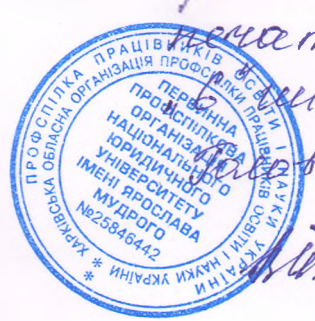 ПРОФСПІЛКА ПРАЦІВНИКІВ ОСВІТИ І НАУКИ УКРАЇНИ
* ХАРКІВСЬКА ОБЛАСНА ОРГАНІЗАЦІЯ ПРОФСПІЛКИ ПРАЦІВНИКІВ ОСВІТИ І НАУКИ УКРАЇНИ *
ПЕРВИННА
ПРОФСПІЛКОВА
ОРГАНІЗАЦІЯ
НАЦІОНАЛЬНОГО
ЮРИДИЧНОГО
УНІВЕРСИТЕТУ
ІМЕНІ ЯРОСЛАВА
МУДРОГО
№25846442